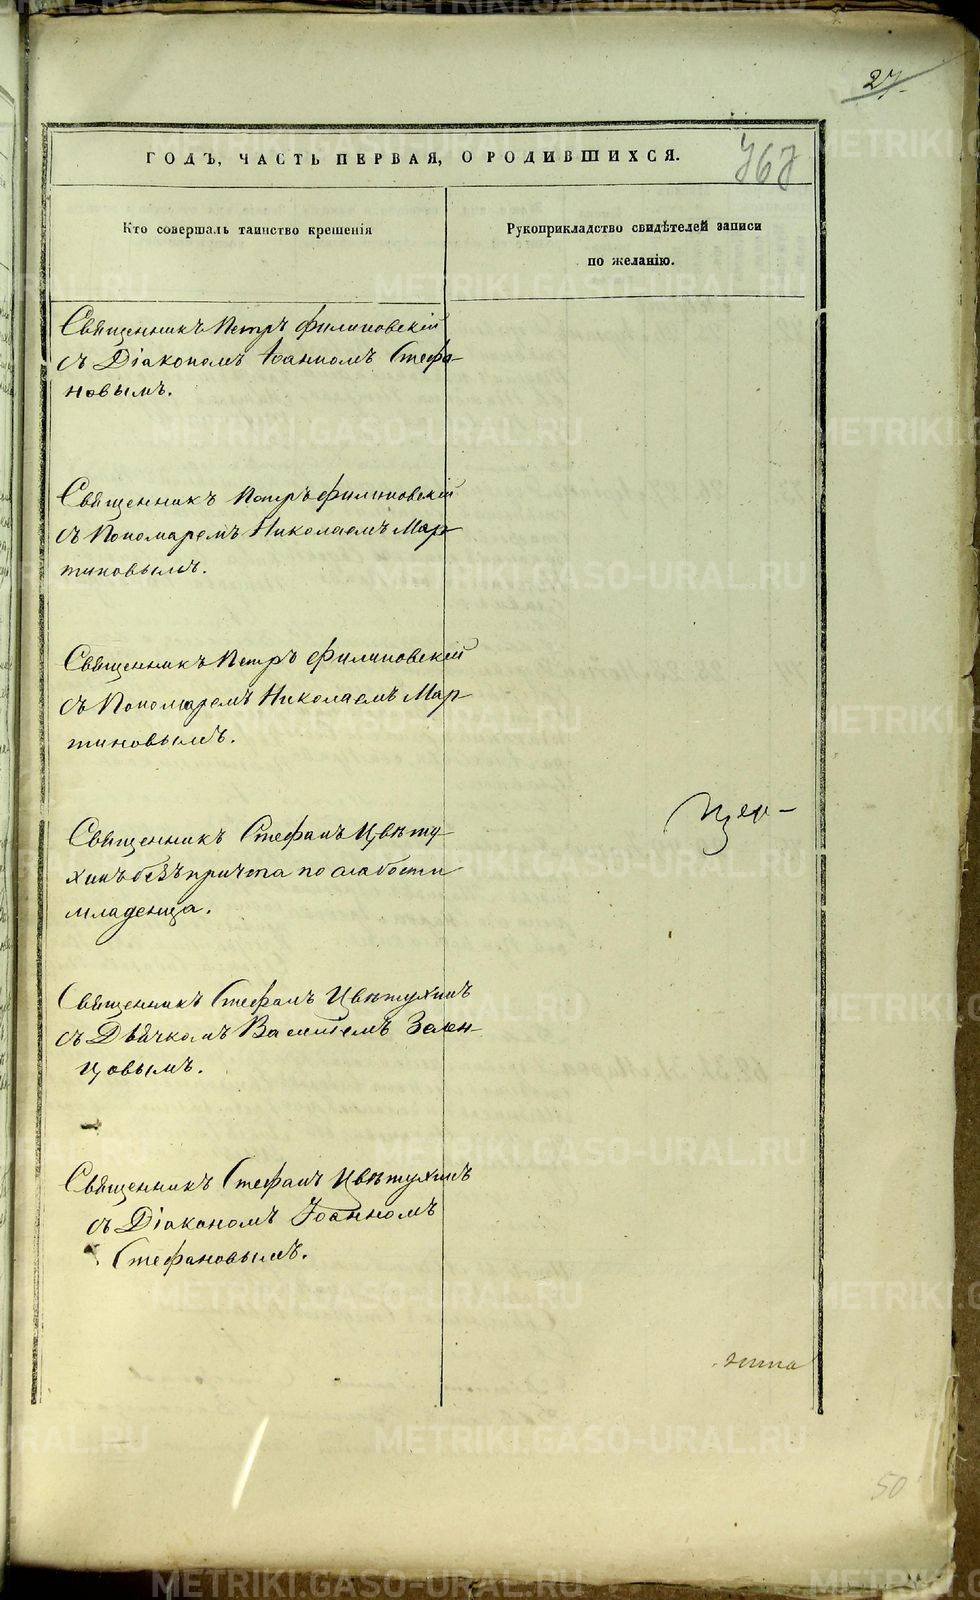 27.
ГОДЪ, ЧАСТЬ ПЕРВАЯ, О РОДИВШИХСЯ.
767
Кто совершалъ таинство крещенія
Рукоприкладство свидѣтелей записи
по желанію.
Священникъ Петръ Филиповскій
съ Діакономъ Іоанномъ Стефа-
новымъ.
Священникъ Петръ Филиповскій
съ Пономаремъ Николаемъ Мар-
тиновымъ.
Священникъ Петръ Филиповскій
съ Пономаремъ Николаемъ Мар-
тиновымъ.
Священникъ Стефанъ Цвѣту-
хинъ безъ причта по слабости
младенца.
Цер-
Священникъ Стефанъ Цвѣтухинъ
съ Дьячкомъ Василіемъ Зелен-
цовымъ.
Священникъ Стефанъ Цвѣтухинъ
съ Діакономъ Іоанномъ
Стефановымъ.
50
METRIKI.GASO-URAL.RU